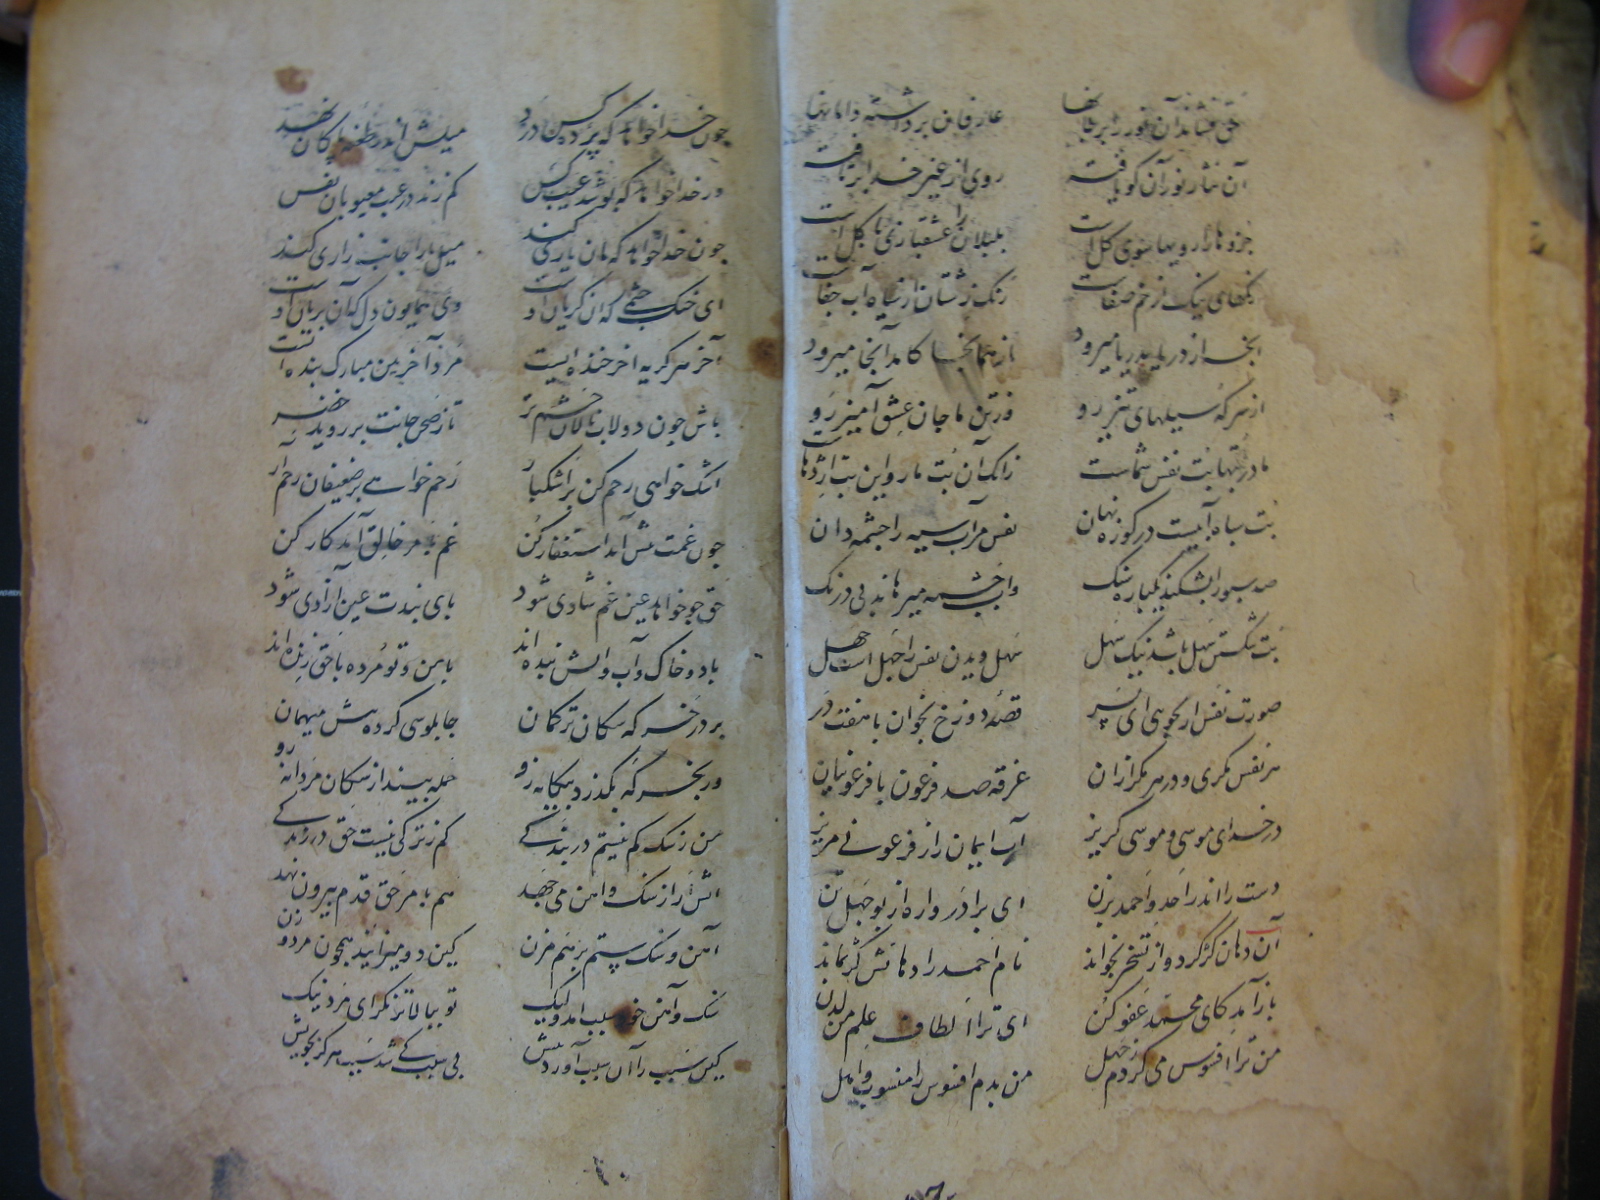 حق فشاند آن نور را بر جانها عارفان برداشته دامانها
آن نثار نور آن کو یافته روی از غیر خدا برتافته
جزوها را رویها سوی کل است بلبلان را عشقبازی با کل است
رنکهای نیک از خم صفاست رنک زشتان از سیاه آب جفاست
آنجه از دریا بدریا میرود از همانجا کامد آنجا میرود
از سر که سیلهای تیز رو وز تن ما جان عشق آمیز رو
مادر بتها بت نفس شماست زانک آن بت مار و این بت اژدهاست
بت سیاه آبیست در کوزه نهان نفس مر آب سیه را چشمه دان
صد سبو را بشکند یکباره سنک واب چشمه میرهاند بی درنک
بت شکستن سهل باشد نیک سهل سهل دیدن نفس را جهل است جهل
صورت نفس ار بجویی ای پسر قصه دوزخ بخوان با هفت در
هر نفس مکری و در هر مکر ازان غرقه صد فرعون با فرعونیان
در خدای موسی و موسی کریز آب ایمان را ز فرعونی مریز
دست را اندر احد و احمد بزن ای برادر واره از بوجهل تن
آن دهان کژ کرد و از تسخر بخواند نام احمد را دهانش کژ بماند
باز آمد کای محمد عفو کن ای ترا الطاف علم من لدن
من ترا افسوس می کردم ز جهل من بدم افسوس را منسوب و اهل
چون خدا خواهد که پرده کس درد میلش اندر طعنه پاکان نهد
ور خدا خواهد که پوشد عیب کس کم زند در عیب معیوبان نفس
چون خدا خواهد که مان یاری کند میل ما را جانب زاری کند
ای خنک چشمی که آن کریان اوست وی همایون دل که آن بریان اوست
آخر هر کریه آخر خنده ایست مرد آخر بین مبارک بنده ایست
باش چون دولاب نالان چشم تر تا ز صحن جانت بر روید خضر
اشک خواهی رحم کن بر اشکبار رحم خواهی بر ضعیفان رحم ار
چون غمت پیش آمد استغفار کن غم بامر خالق آمد کار کن
حق چو خواهد عین غم شادی شود بای بندت عین آزادی شود
باد و خاک و آب و اتش بنده اند با من و تو مرده با حق زنده اند
بر در خرکه سکان ترکمان چابلوسی کرده پیش میهمان
ور بخرکه بکذرد بیکانه رو حمله بیند از سکان مردانه رو
من ز سک کم نیستم در بندکی کم ز ترکی نیست حق در زندکی
اتش را از سنک و اهن می جهد هم بامر حق قدم بیرون نهد
آهن و سنک ستم بر هم مزن کین دو میزایند همچون مرد و زن
سنک و آهن خود سبب امد ولیک تو ببالاتر نکر ای مرد نیک
کین سبب را آن سبب آورد پیش بی سبب کی شد سبب هرکز بخویش